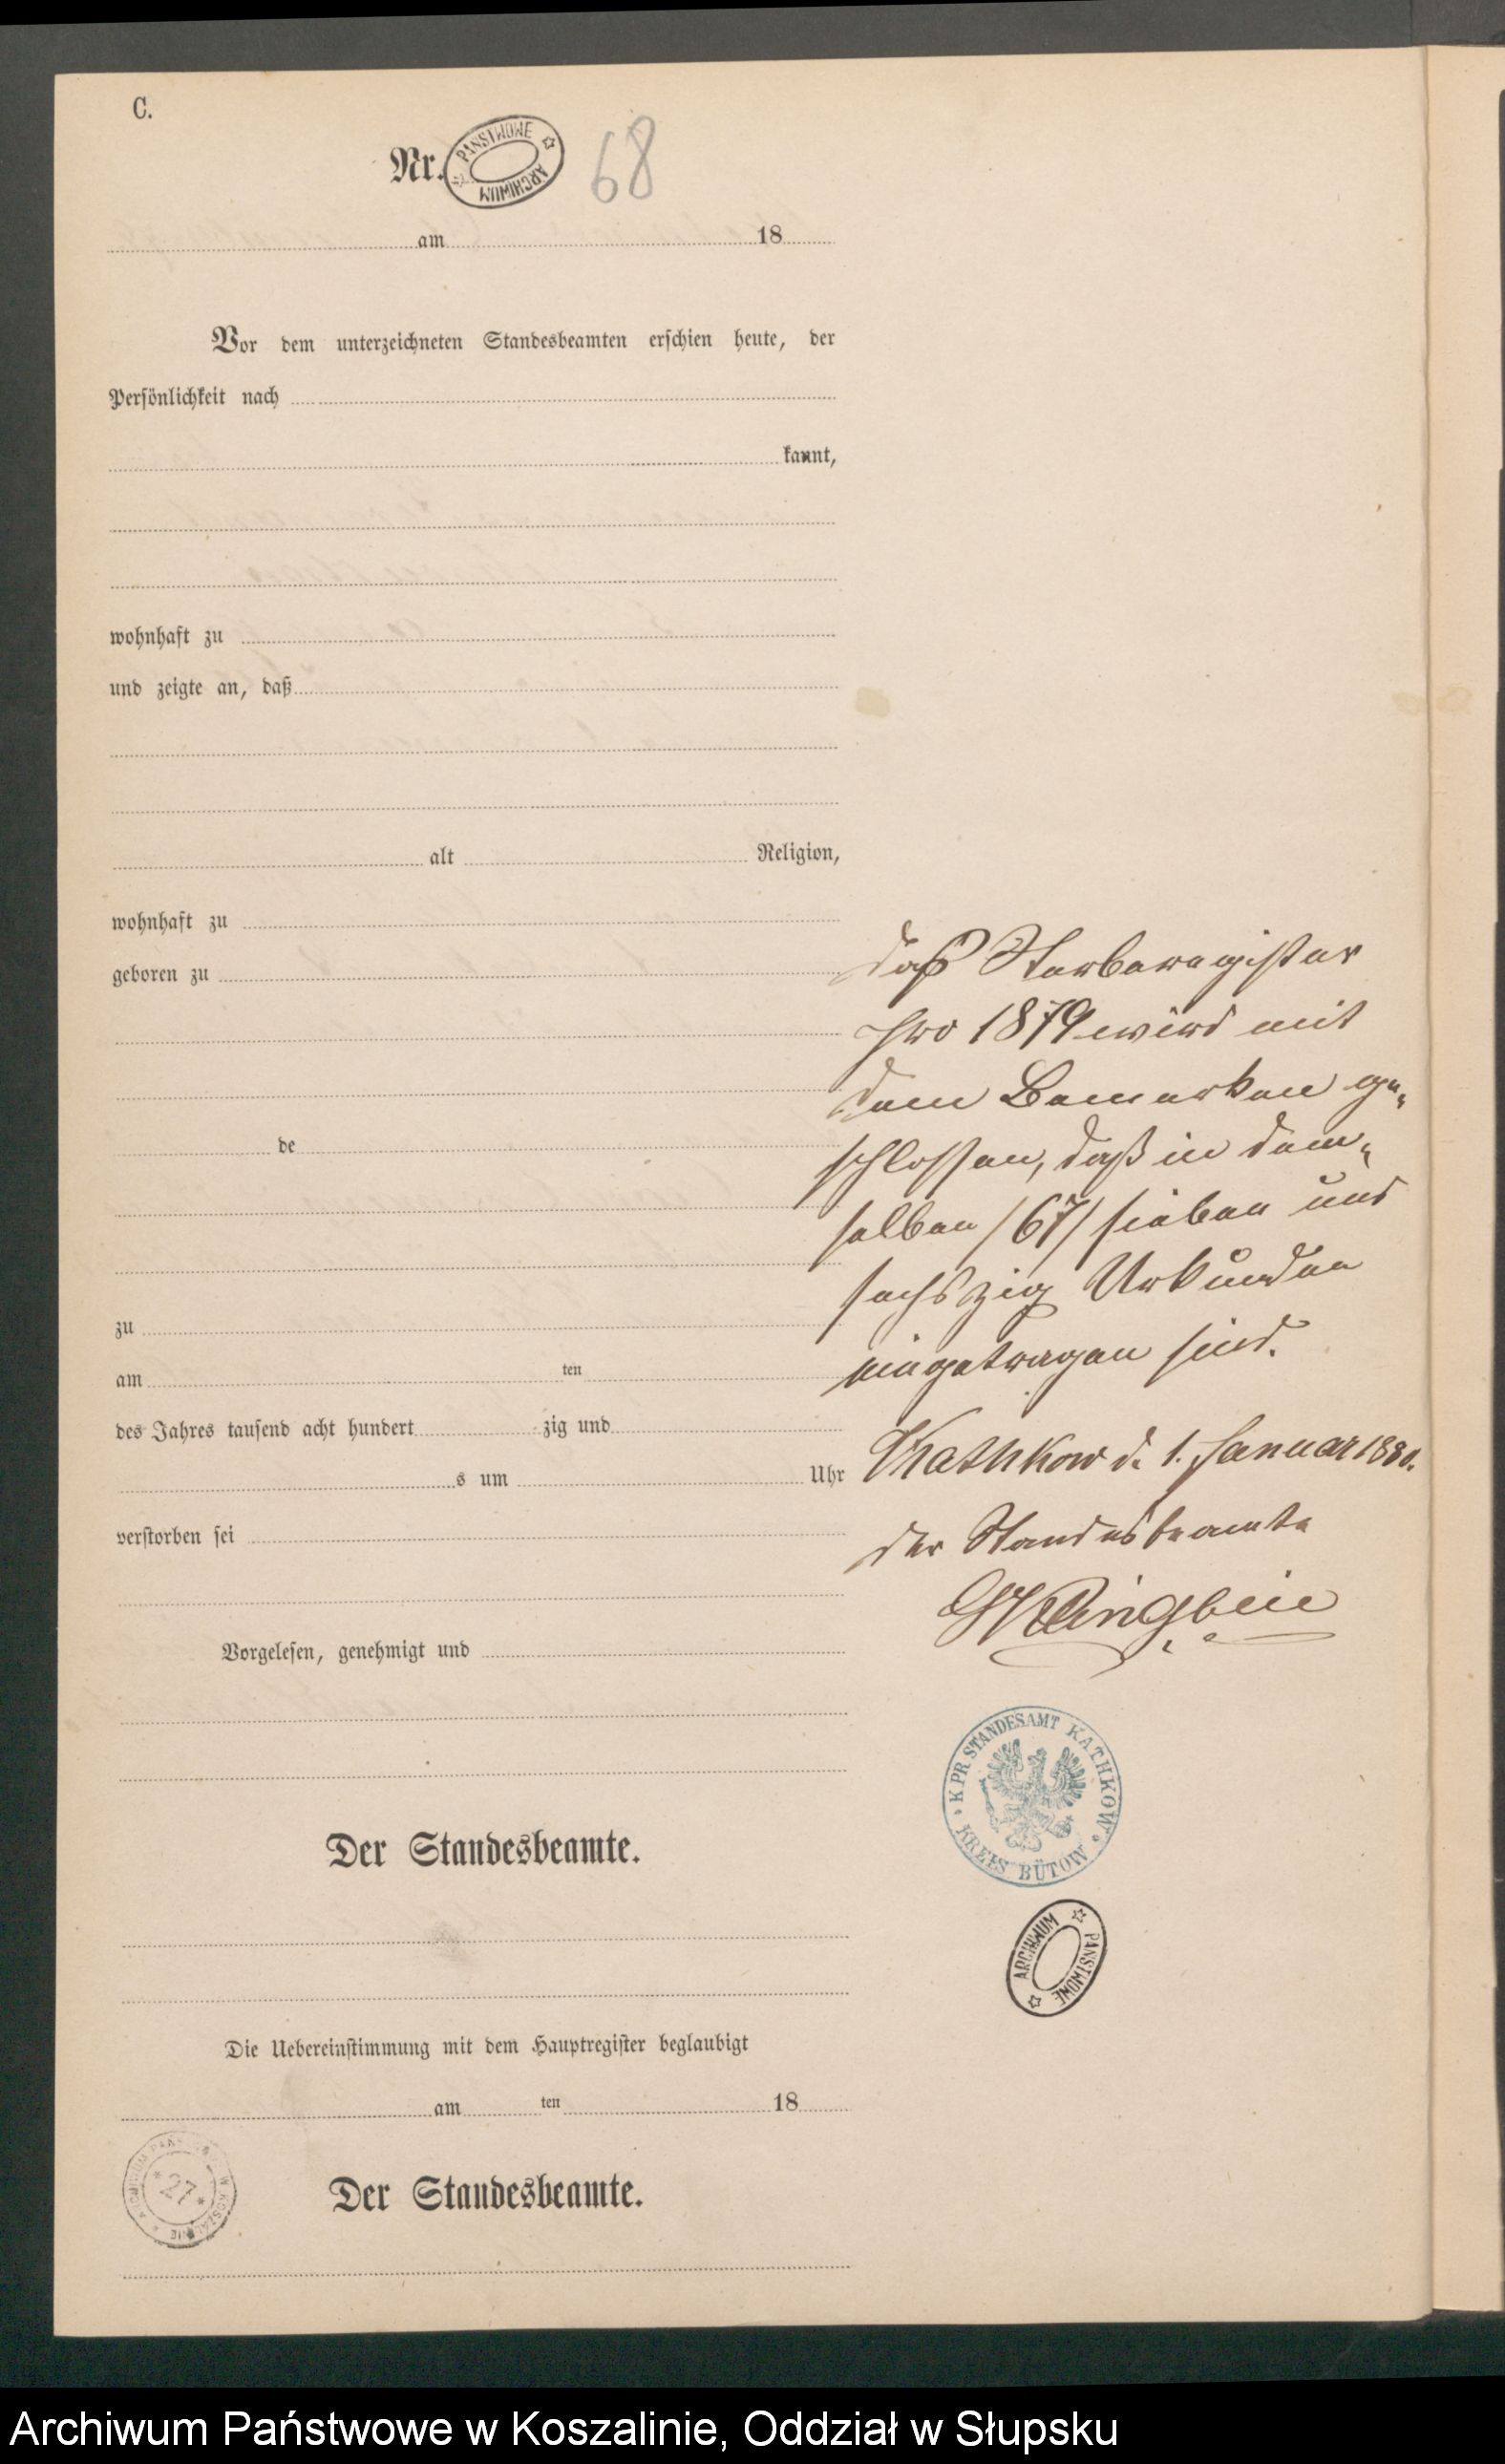 C.
Nr.
PANSTWOWE ARCHIWUM
68
am 18
Vor dem unterzeichneten Standesbeamten erschien heute, der
Persönlichkeit nach
kannt,
wohnhaft zu
und zeigte an, daß
alt Religion,
wohnhaft zu
geboren zu
de
zu
am ten
des Jahres tausend acht hundert zig und
s um Uhr
verstorben sei
Vorgelesen, genehmigt und
Der Standesbeamte.
Die Uebereinstimmung mit dem Hauptregister beglaubigt
am ten 18
Der Standesbeamte.
Daß Sterberegister
pro 1879 wird mit
dem Bemerken ge„
schlossen, daß in dem„
selben /67/ sieben und
sechszig Urkunden
eingetragen sind.
Kathkow d. 1. Januar 1880.
Der Standesbeamte
KPR STANDESAMT KATHKOW
KREIS BÜTOW
ARCHIWUM PANSTWOWE
27
Archiwum Państwowe w Koszalinie, Oddział w Słupsku